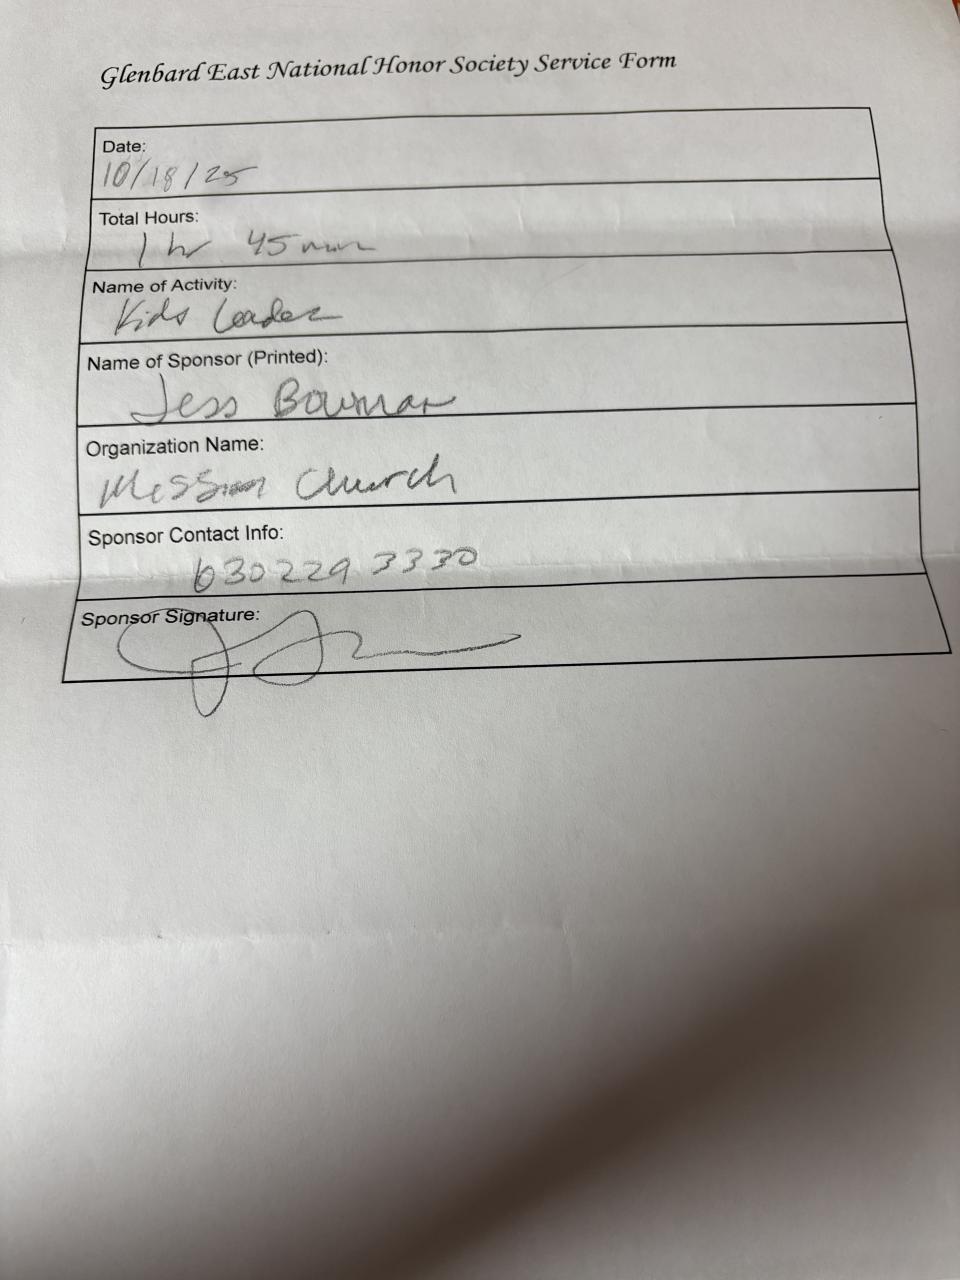 Glenbard East National Honor Society Service Form
Date:
10/18/25
Total Hours:
1 hr 45 min
Name of Activity:
Kids Leader
Name of Sponsor (Printed):
Jess Bowman
Organization Name:
Mission Church
Sponsor Contact Info:
630 229 3330
Sponsor Signature: